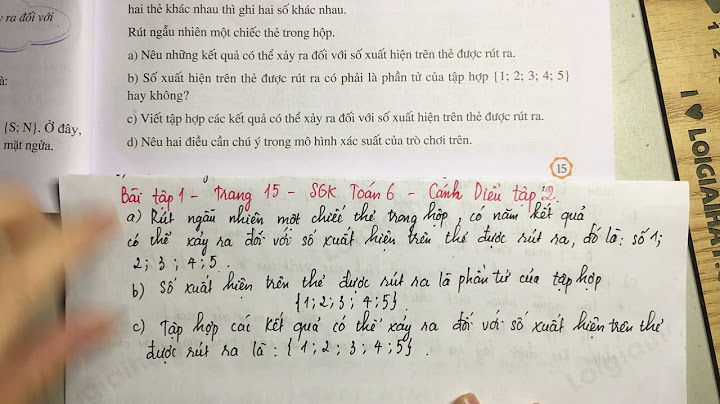 hai thẻ khác nhau thì ghi hai số khác nhau.
Rút ngẫu nhiên một chiếc thẻ trong hộp.
a) Nêu những kết quả có thể xảy ra đối với số xuất hiện trên thẻ được rút ra.
b) Số xuất hiện trên thẻ được rút ra có phải là phần tử của tập hợp {1; 2; 3; 4; 5}
hay không?
c) Viết tập hợp các kết quả có thể xảy ra đối với số xuất hiện trên thẻ được rút ra.
d) Nêu hai điều cần chú ý trong mô hình xác suất của trò chơi trên.
15
ra đối với
à:
{S; N}. Ở đây,
mặt ngửa.
Bài tập 1 - Trang 15 - SGK Toán 6 - Cánh Diều tập 2.
a) Rút ngẫu nhiên một chiếc thẻ trong hộp, có năm kết quả
có thể xảy ra đối với số xuất hiện trên thẻ được rút ra, đó là: số 1;
2; 3; 4; 5.
b) Số xuất hiện trên thẻ được rút ra là phần tử của tập hợp
{1; 2; 3; 4; 5}.
c) Tập hợp các kết quả có thể xảy ra đối với số xuất hiện trên thẻ
được rút ra là: {1; 2; 3; 4; 5}.
I ♥ LOIGIAIHAY.